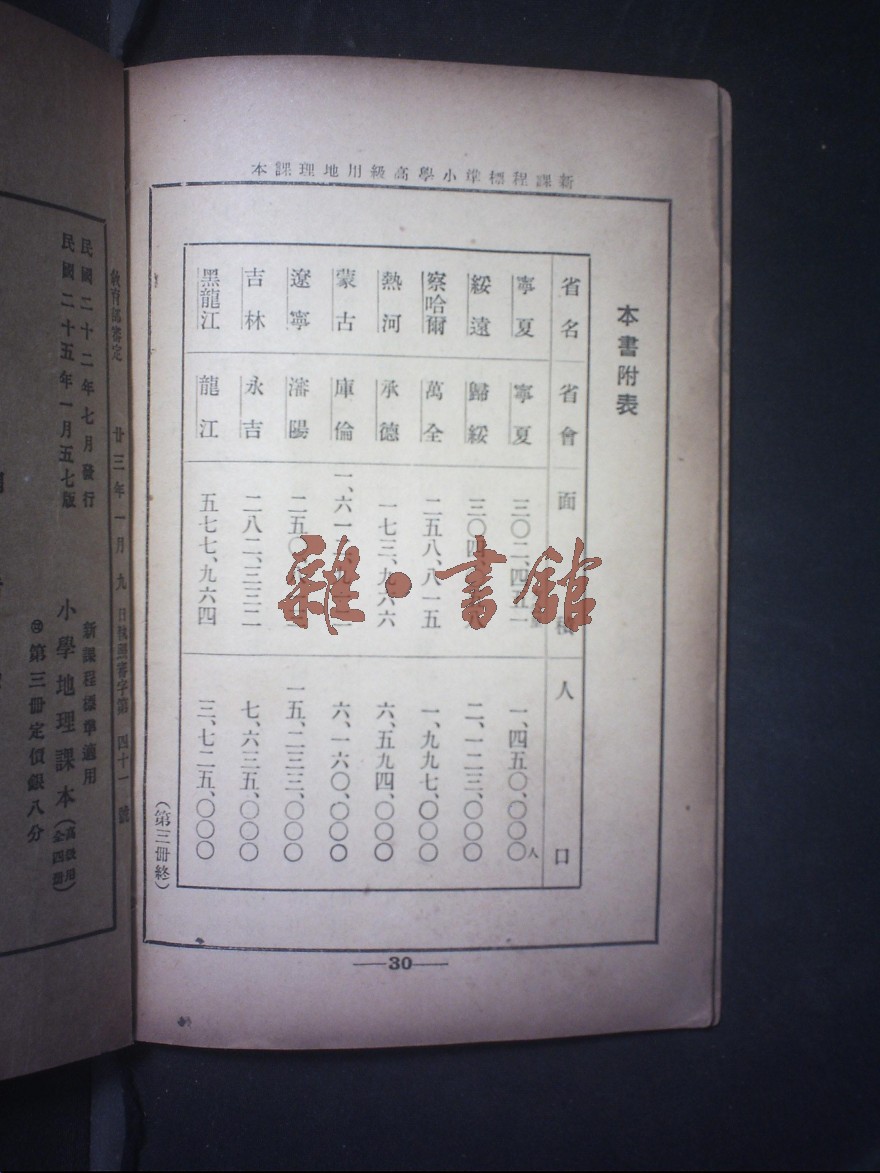 新課程標準小學高級用地理課本
本書附表
省名 省會 面積 人口
寧夏 寧夏 三〇二、四五一 一、四五〇、〇〇〇人
綏遠 歸綏 三〇四、 二、一二三、〇〇〇
察哈爾 萬全 二五八、八一五 一、九九七、〇〇〇
熱河 承德 一七三、九六六 六、五九四、〇〇〇
蒙古 庫倫 一、六一 六、一六〇、〇〇〇
遼寧 瀋陽 二五〇 一五、二三三、〇〇〇
吉林 永吉 二八二、三三二 七、六三五、〇〇〇
黑龍江 龍江 五七七、九六四 三、七二五、〇〇〇
(第三冊終)
30
雜·書館
教育部審定 廿三年一月九日執照審字第四十一號
民國二十二年七月發行
民國二十五年一月五七版
新課程標準適用
小學地理課本(高級用全四冊)
第三冊定價銀八分